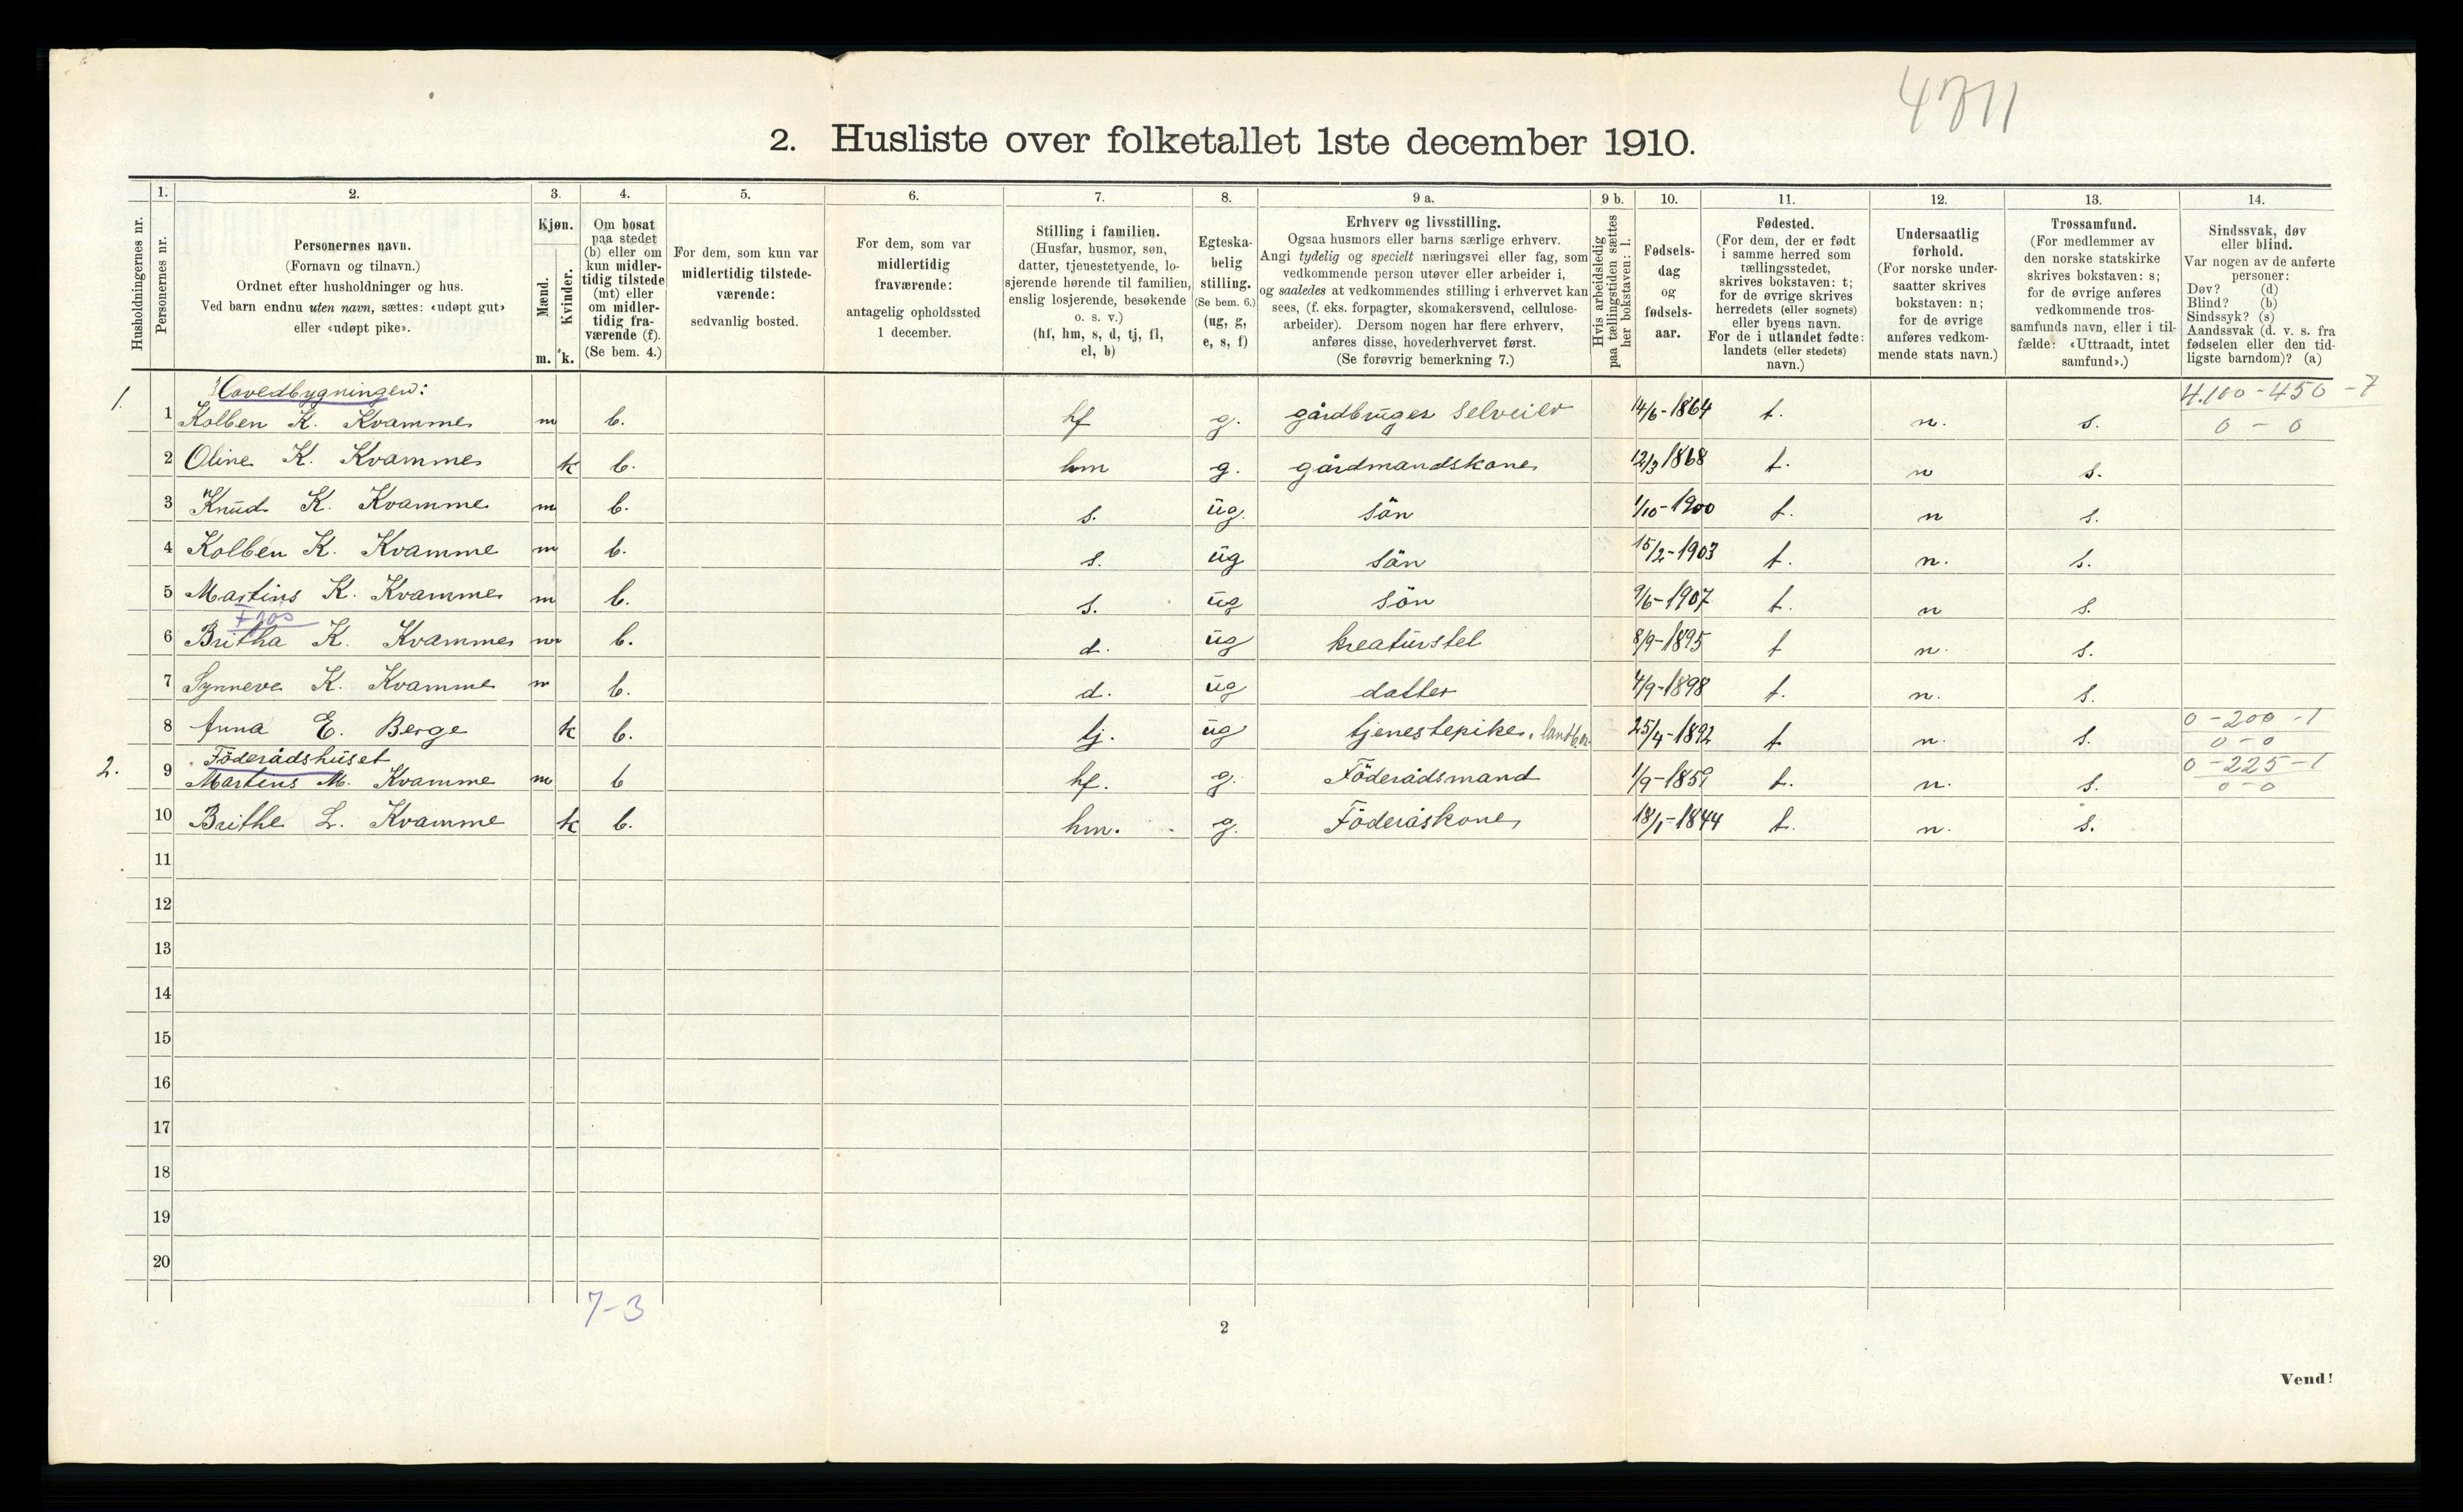 4711
2. Husliste over folketallet 1ste december 1910.
Husholdningernes nr.
1.
Personernes nr.
2.
Personernes navn.
(Fornavn og tilnavn.)
Ordnet efter husholdninger og hus.
Ved barn endnu uten navn, sættes: «udøpt gut»
eller «udøpt pike».
3.
Kjøn.
Mænd.
Kvinder.
m. k.
4.
Om bosat
paa stedet
(b) eller om
kun midler-
tidig tilstede
(mt) eller
om midler-
tidig fra-
værende (f).
(Se bem. 4.)
5.
For dem, som kun var
midlertidig tilstede-
værende:
sedvanlig bosted.
6.
For dem, som var
midlertidig
fraværende:
antagelig opholdssted
1 december.
7.
Stilling i familien.
(Husfar, husmor, søn,
datter, tjenestetyende, lo-
sjerende hørende til familien,
enslig losjerende, besøkende
o. s. v.)
(hf, hm, s, d, tj, fl,
el, b)
8.
Egteska-
belig
stilling.
(Se bem. 6.)
(ug, g,
e, s, f)
9 a.
Erhverv og livsstilling.
Ogsaa husmors eller barns særlige erhverv.
Angi tydelig og specielt næringsvei eller fag, som
vedkommende person utøver eller arbeider i,
og saaledes at vedkommendes stilling i erhvervet kan
sees, (f. eks. forpagter, skomakersvend, cellulose-
arbeider). Dersom nogen har flere erhverv,
anføres disse, hovederhvervet først.
(Se forøvrig bemerkning 7.)
9 b.
Hvis arbeidsledig
paa tællingstiden sættes
her bokstaven: l.
10.
Fødsels-
dag
og
fødsels-
aar.
11.
Fødested.
(For dem, der er født
i samme herred som
tællingsstedet,
skrives bokstaven: t;
for de øvrige skrives
herredets (eller sognets)
eller byens navn.
For de i utlandet fødte:
landets (eller stedets)
navn.)
12.
Undersaatlig
forhold.
(For norske under-
saatter skrives
bokstaven: n;
for de øvrige
anføres vedkom-
mende stats navn.)
13.
Trossamfund.
(For medlemmer av
den norske statskirke
skrives bokstaven: s;
for de øvrige anføres
vedkommende tros-
samfunds navn, eller i til-
fælde: «Uttraadt, intet
samfund».)
14.
Sindssvak, døv
eller blind.
Var nogen av de anførte
personer:
Døv? (d)
Blind? (b)
Sindssyk? (s)
Aandssvak (d. v. s. fra
fødselen eller den tid-
ligste barndom)? (a)
Hovedbygningen: 4.100-450-7
1. 1 Kolben K. Kvamme m b. hf g. gårdbruger selveier 14/6-1864 t. n. s. 0 - 0
2 Oline K. Kvamme k b. hm g. gårdmandskone 12/3 1868 t. n s.
3 Knud K. Kvamme m b. s. ug. sön 1/10-1900 t. n s.
4 Kolben K. Kvamme m b. s. ug sön 15/2-1903 t. n. s.
5 Martins K. Kvamme m b. s. ug sön 9/6-1907 t. n s.
6 Britha K. Kvamme m b. d. ug kreaturstel 8/9-1895 t n. s.
7 Synneve K. Kvamme m b. d. ug datter 4/9-1898 t. n. s.
0-200-1
8 Anna E. Berge k b. tj. ug tjenestepike. landb. 25/4-1892 t n. s. 0-0
Föderådshuset 0-225-1
2. 9 Martins M. Kvamme m b hf. g. Föderådsmand 1/9-1859 t. n. s. 0-0
10 Brithe L. Kvamme k b. hm. g. Föderåskone 18/1-1844 t. n. s.
11
12
13
14
15
16
17
18
19
20
7-3
2
Vend!